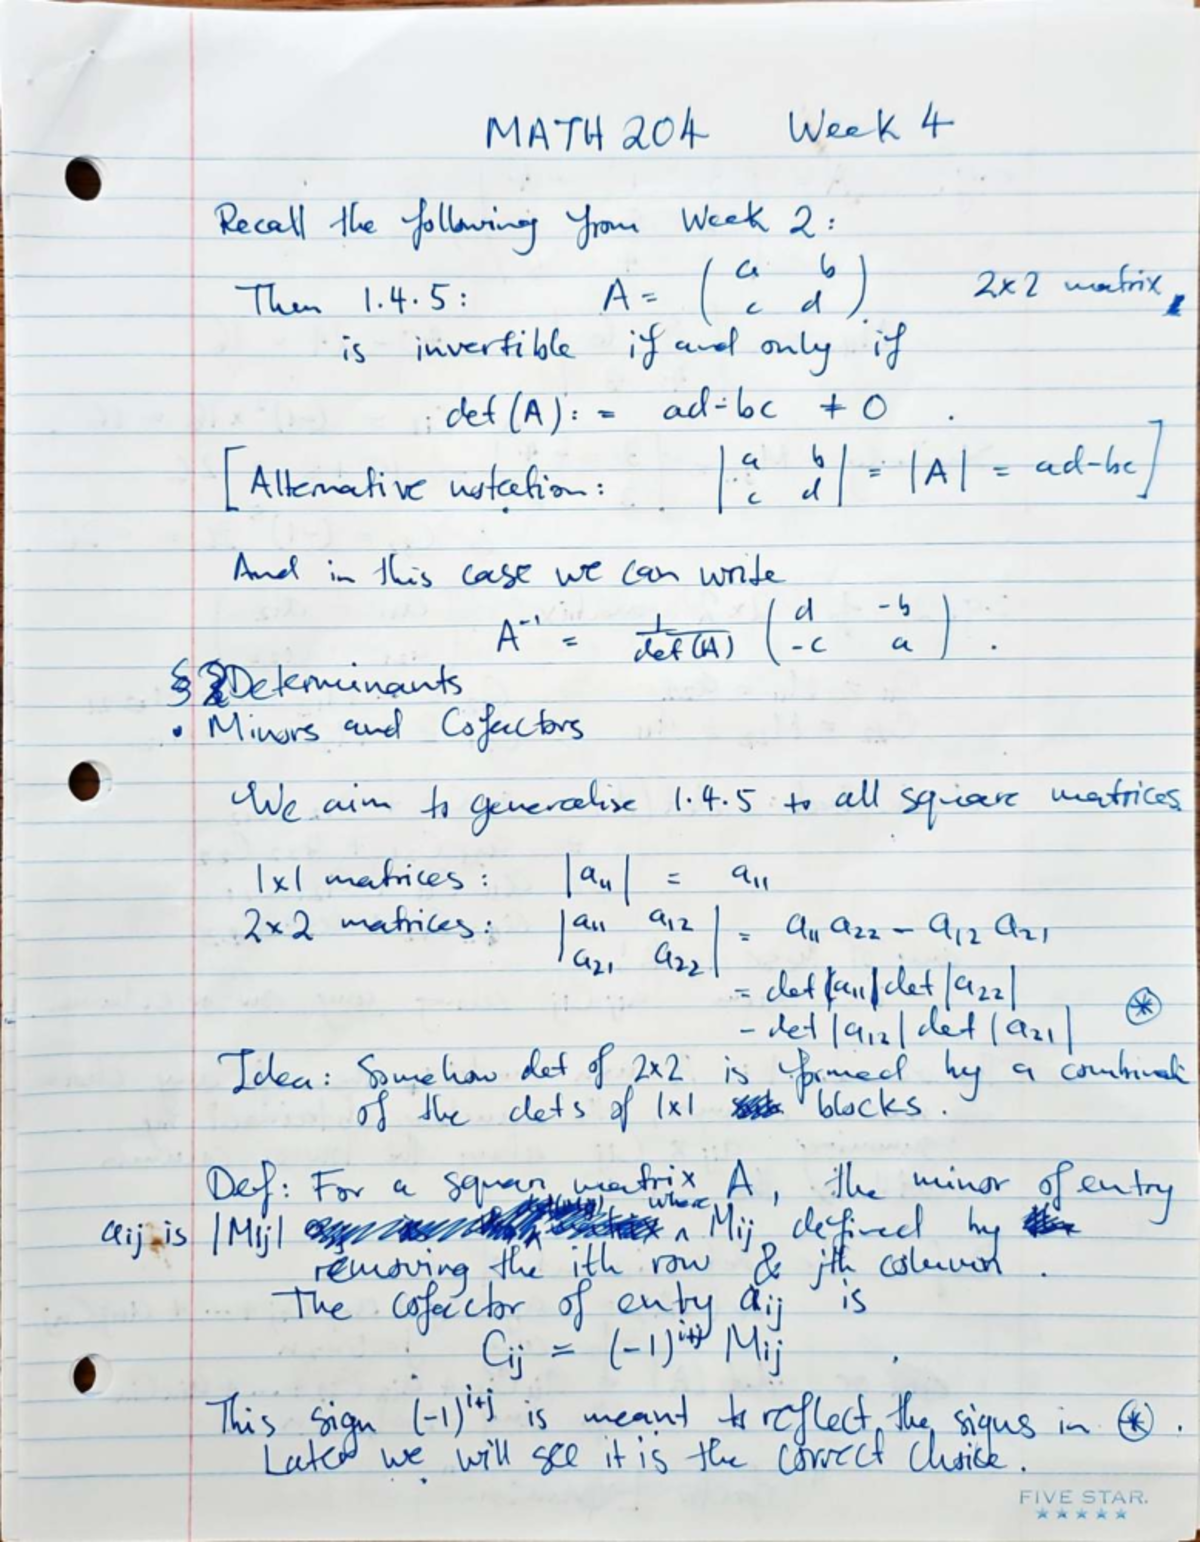 MATH 204 Week 4
Recall the following from Week 2:
Then 1.4.5: A = ( a b 2×2 matrix,
c d )
is invertible if and only if
det(A) := ad-bc ≠ 0 .
[Alternative notation: | a b | = |A| = ad-bc]
c d
And in this case we can write
A⁻¹ = 1/det(A) ( d -b
-c a ) .
§ 2 Determinants
• Minors and Cofactors
We aim to generalise 1.4.5 to all square matrices
1×1 matrices: |a₁₁| = a₁₁
2×2 matrices: | a₁₁ a₁₂ | = a₁₁ a₂₂ - a₁₂ a₂₁
a₂₁ a₂₂
= det|a₁₁|det|a₂₂|
- det|a₁₂| det|a₂₁| ⊛
Idea: Somehow det of 2×2 is formed by a combinat
of the dets of 1×1 blocks.
Def: For a square matrix A, the minor of entry
aij is |Mij| where Mij defined by
removing the ith row & jth column.
The cofactor of entry aij is
Cij = (-1)^{i+j} Mij .
This sign (-1)^{i+j} is meant to reflect the signs in ⊛.
Later we will see it is the correct choice.
FIVE STAR.
★★★★★